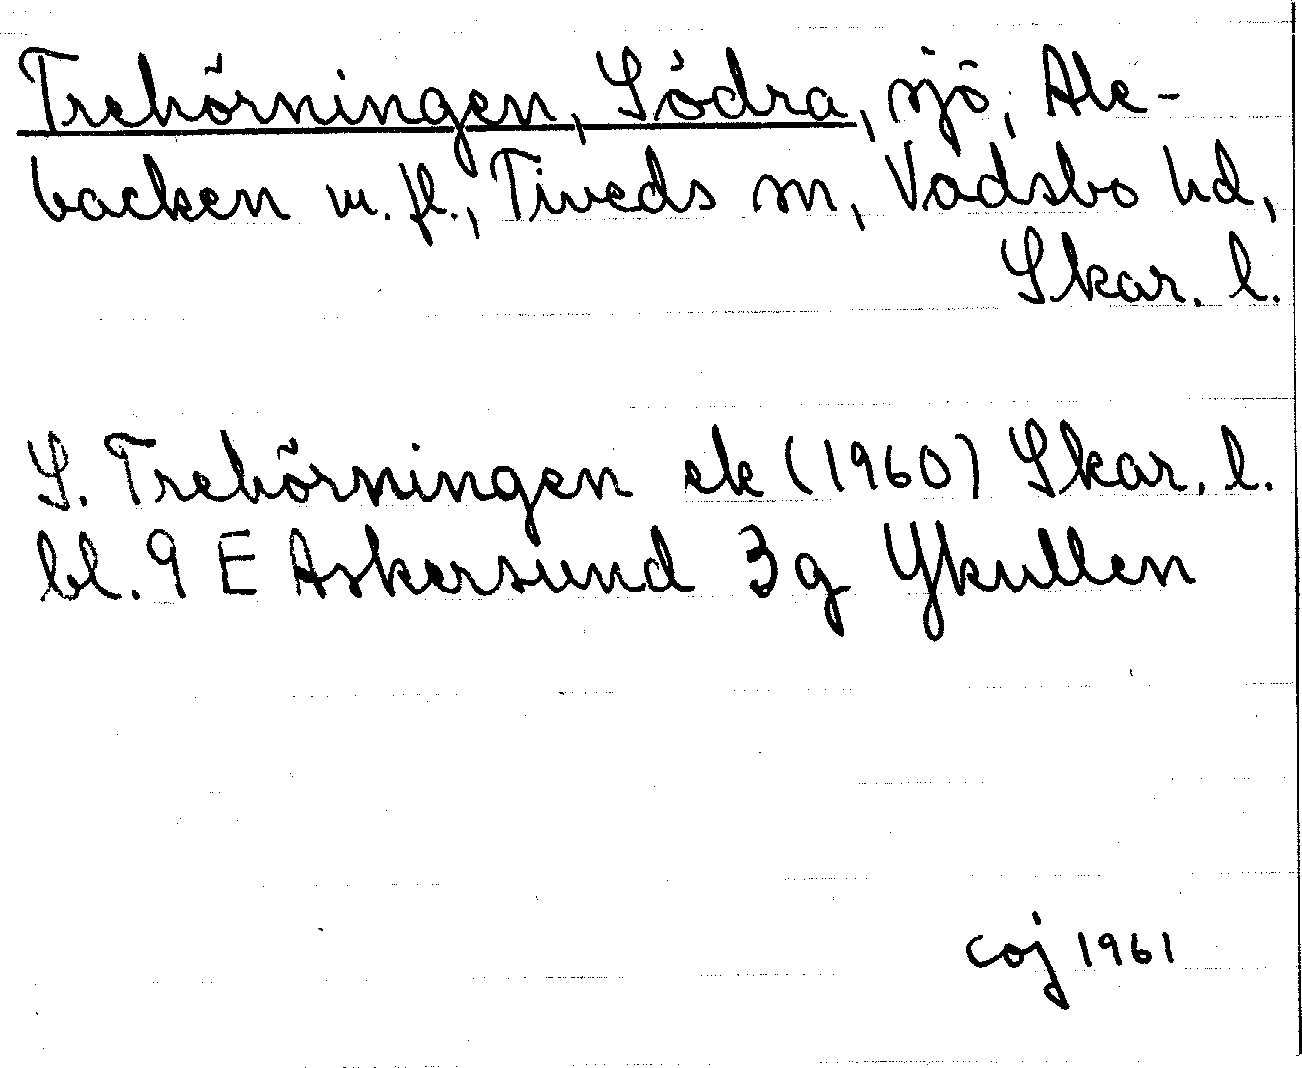 Trehörningen, Södra, sjö, Ale-
backen m. fl., Tiveds sn, Vadsbo hd,
Skar. l.
S. Trehörningen ek (1960) Skar. l.
bl. 9 E Askersund 3g Ykullen
coj 1961